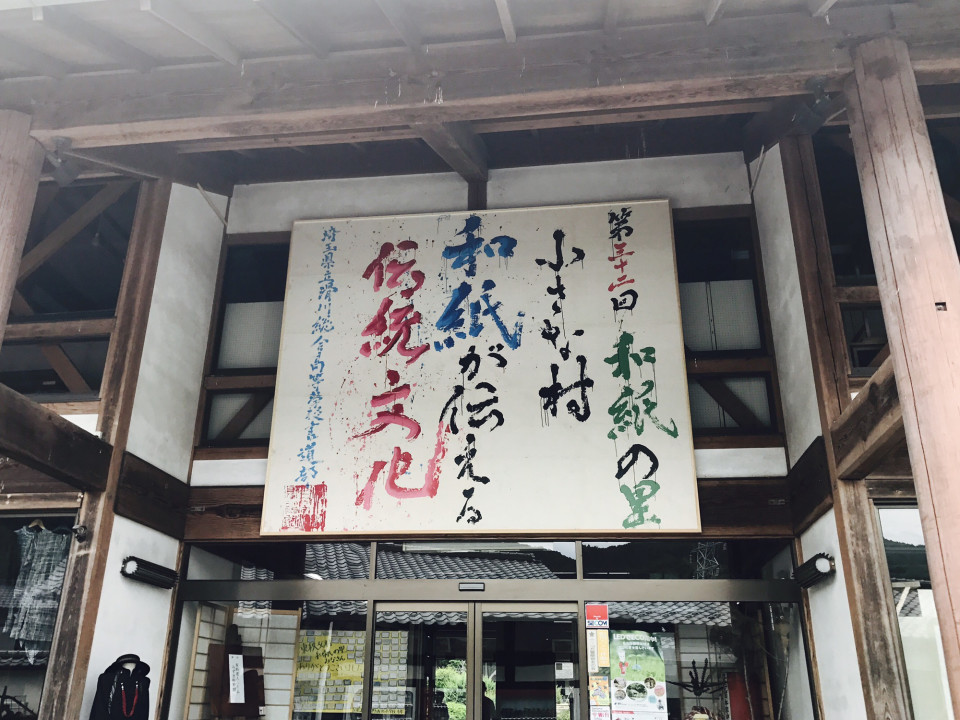 第三十二回和紙の里
小さな村
和紙が伝える
伝統文化
埼玉県立滑川総合高等学校書道部
SECOM
LED